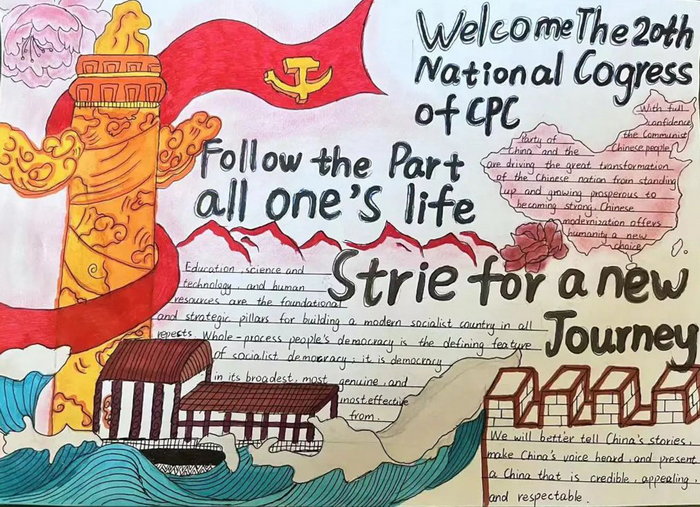 Welcome The 20th
National Cogress
of CPC
Follow the Part
all one's life
With full
confidence
the Communist
Party of
China and the
Chinese people
are driving the great transformation
of the Chinese nation from standing
up and growing prosperous to
becoming strong. Chinese
modernization offers
humanity a new
choice
Strie for a new
Journey
Education, science and
technology, and human
resources are the foundational
and strategic pillars for building a modern socialist country in all
repests. Whole-process people's democracy is the defining feature
of socialist democracy; it is democracy
in its broadest, most genuine, and
most effective
from
We will better tell China's stories,
make China's voice heard, and present
a China that is credible, appealing,
and respectable.